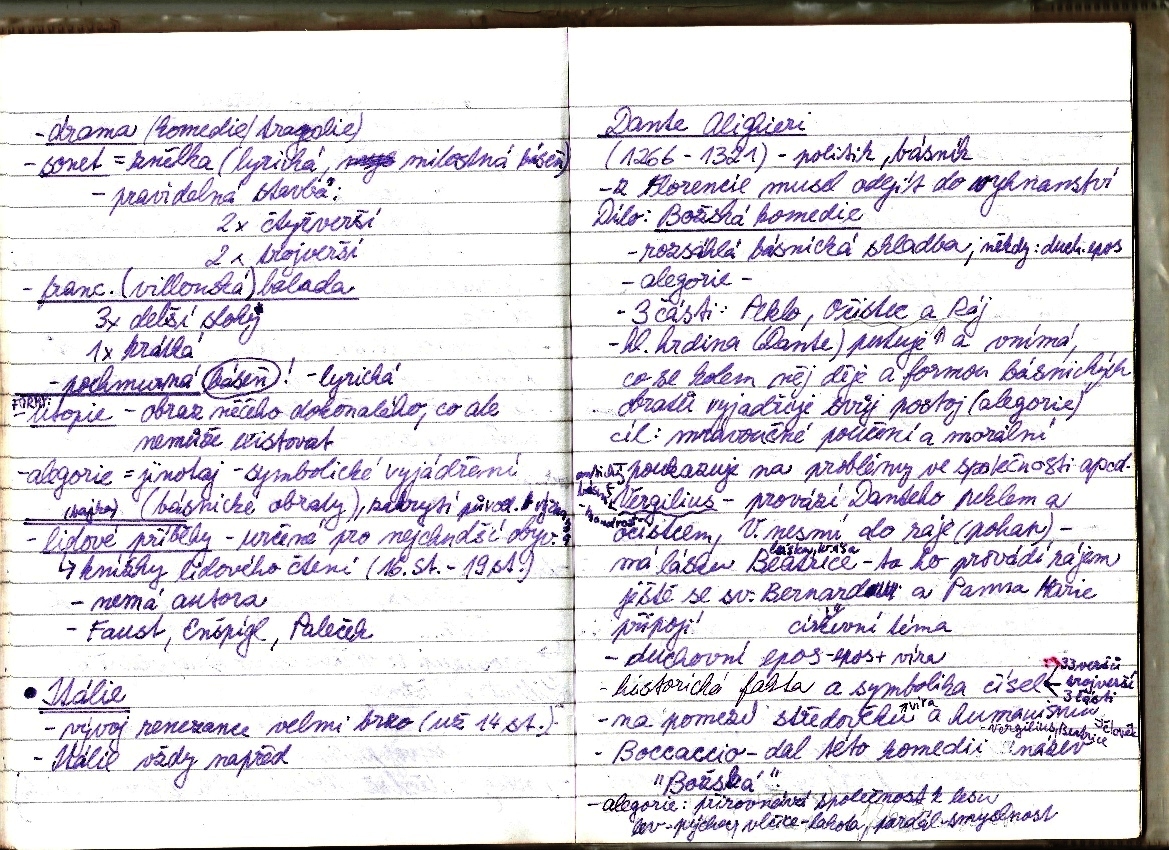 - drama (komedie/tragedie)
- sonet = znělka (lyrická, milostná báseň)
- pravidelná stavba:
2x čtyřverší
2x trojverší
- franc. (villonská) balada
3x delší sloky
1x krátká
- pochmurná báseň! - lyrická
FORMY:
- utopie - obraz něčeho dokonalého, co ale
nemůže existovat
- alegorie = jinotaj - symbolické vyjádření
(bajka) (básnické obraty), zakrytí původ. významu
- lidové příběhy - určená pro nejchudší obyv.
↳ knížky lidového čtení (16. st. - 19 st.)
- nemá autora
- Faust, Enšpígl, Paleček
• Itálie
- vývoj renezance velmi brzo (už 14 st.)
- Itálie vždy napřed
Dante Alighieri
(1266 - 1321) - politik, básník
- z Florencie musel odejít do vyhnanství
Dílo: Božská komedie
- rozsáhlá básnická skladba, někdy: duch. epos
- alegorie -
- 3 části: Peklo, Očistec a Ráj
- hl. hrdina (Dante) putuje a vnímá,
co se kolem něj děje a formou básnických
obratů vyjadřuje svůj postoj (alegorie)
cíl: mravoučné poučení a morální
poukazuje na problémy ve společnosti apod.
antický
básník
- moudrost
Vergilius - provází Danteho peklem a
očistcem, V. nesmí do ráje (pohan) -
láska, krása
má lásku Beatrice - ta ho provádí rájem
ještě se sv. Bernard a Panna Marie
připojí církevní téma
- duchovní epos - epos + víra
- historická fakta a symbolika čísel
33 veršů
trojverší
3 části
- na pomezí středověku a humanismu
víra
- Vergilius, Beatrice
člověk
- Boccaccio - dal této komedii název
"Božská"
- alegorie: přirovnává společnost k lesu
lev - pýcha, vlčice - lakota, pardál - smyslnost